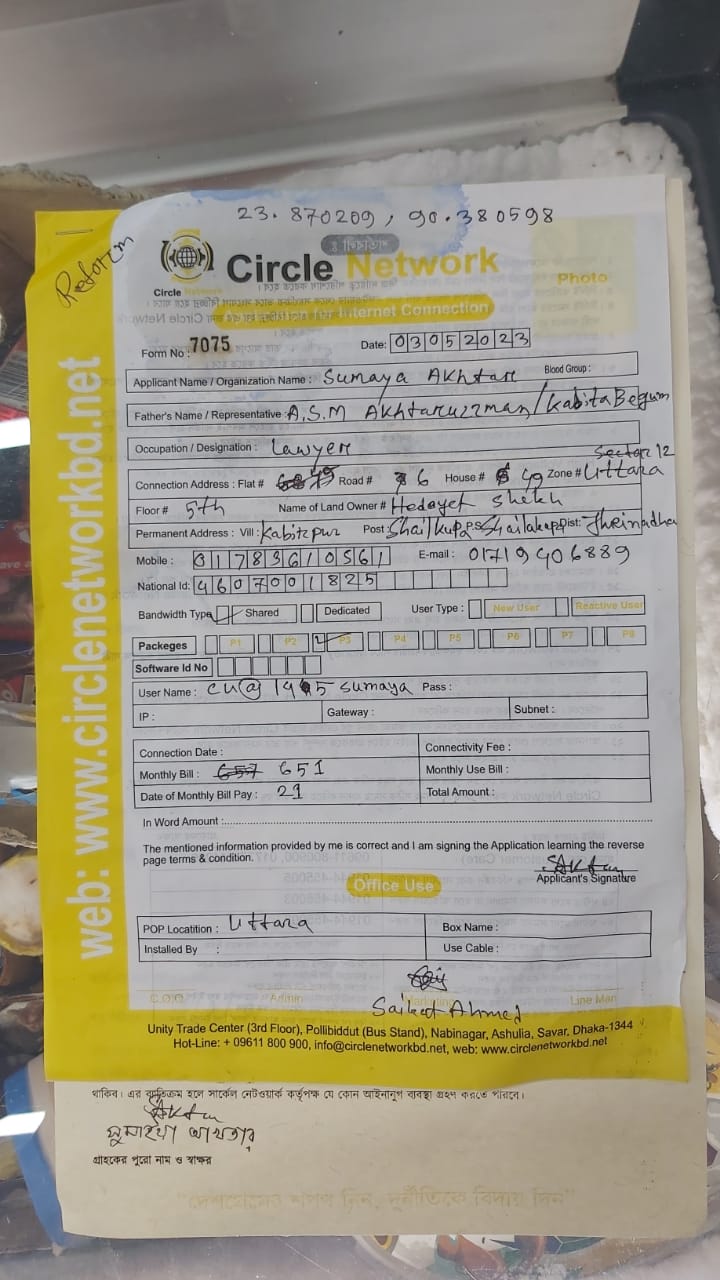 23.870209, 90.380598
Reform
Circle Network
Circle Network
Photo
for Internet Connection
Form No : 7075
Date: 03052023
Applicant Name / Organization Name : Sumaya Akhtar Blood Group :
Father's Name / Representative : A.S.M Akhtaruzzman / Kabita Begum
Occupation / Designation : Lawyer
Sector 12
Connection Address : Flat # Road # 6 House # 49 Zone # Uttara
Floor # 5th Name of Land Owner # Hedayet Shekh
Permanent Address : Vill : Kabirpur Post : Shailkupa P.S: Shailakupa Dist: Jheinadha
Mobile : 01783610561 E-mail : 01719406889
National Id: 4607001825
Bandwidth Type Shared Dedicated User Type : New User Reactive User
Packeges P1 P2 P3 P4 P5 P6 P7 P8
Software Id No
User Name : Sumaya Pass :
IP : Gateway : Subnet :
Connection Date : Connectivity Fee :
Monthly Bill : 651 Monthly Use Bill :
Date of Monthly Bill Pay : 21 Total Amount :
In Word Amount :
The mentioned information provided by me is correct and I am signing the Application learning the reverse
page terms & condition.
Applicant's Signature
Office Use
POP Locatition : Uttara Box Name :
Installed By : Use Cable :
C.O.O Admin Marketing Line Man
Saikat Ahmed
Unity Trade Center (3rd Floor), Pollibiddut (Bus Stand), Nabinagar, Ashulia, Savar, Dhaka-1344
Hot-Line: + 09611 800 900, info@circlenetworkbd.net, web: www.circlenetworkbd.net
web: www.circlenetworkbd.net
থাকিব। এর ব্যতিক্রম হলে সার্কেল নেটওয়ার্ক কর্তৃপক্ষ যে কোন আইনানুগ ব্যবস্থা গ্রহণ করতে পারবে।
সুমাইয়া আখতার
গ্রাহকের পুরো নাম ও স্বাক্ষর